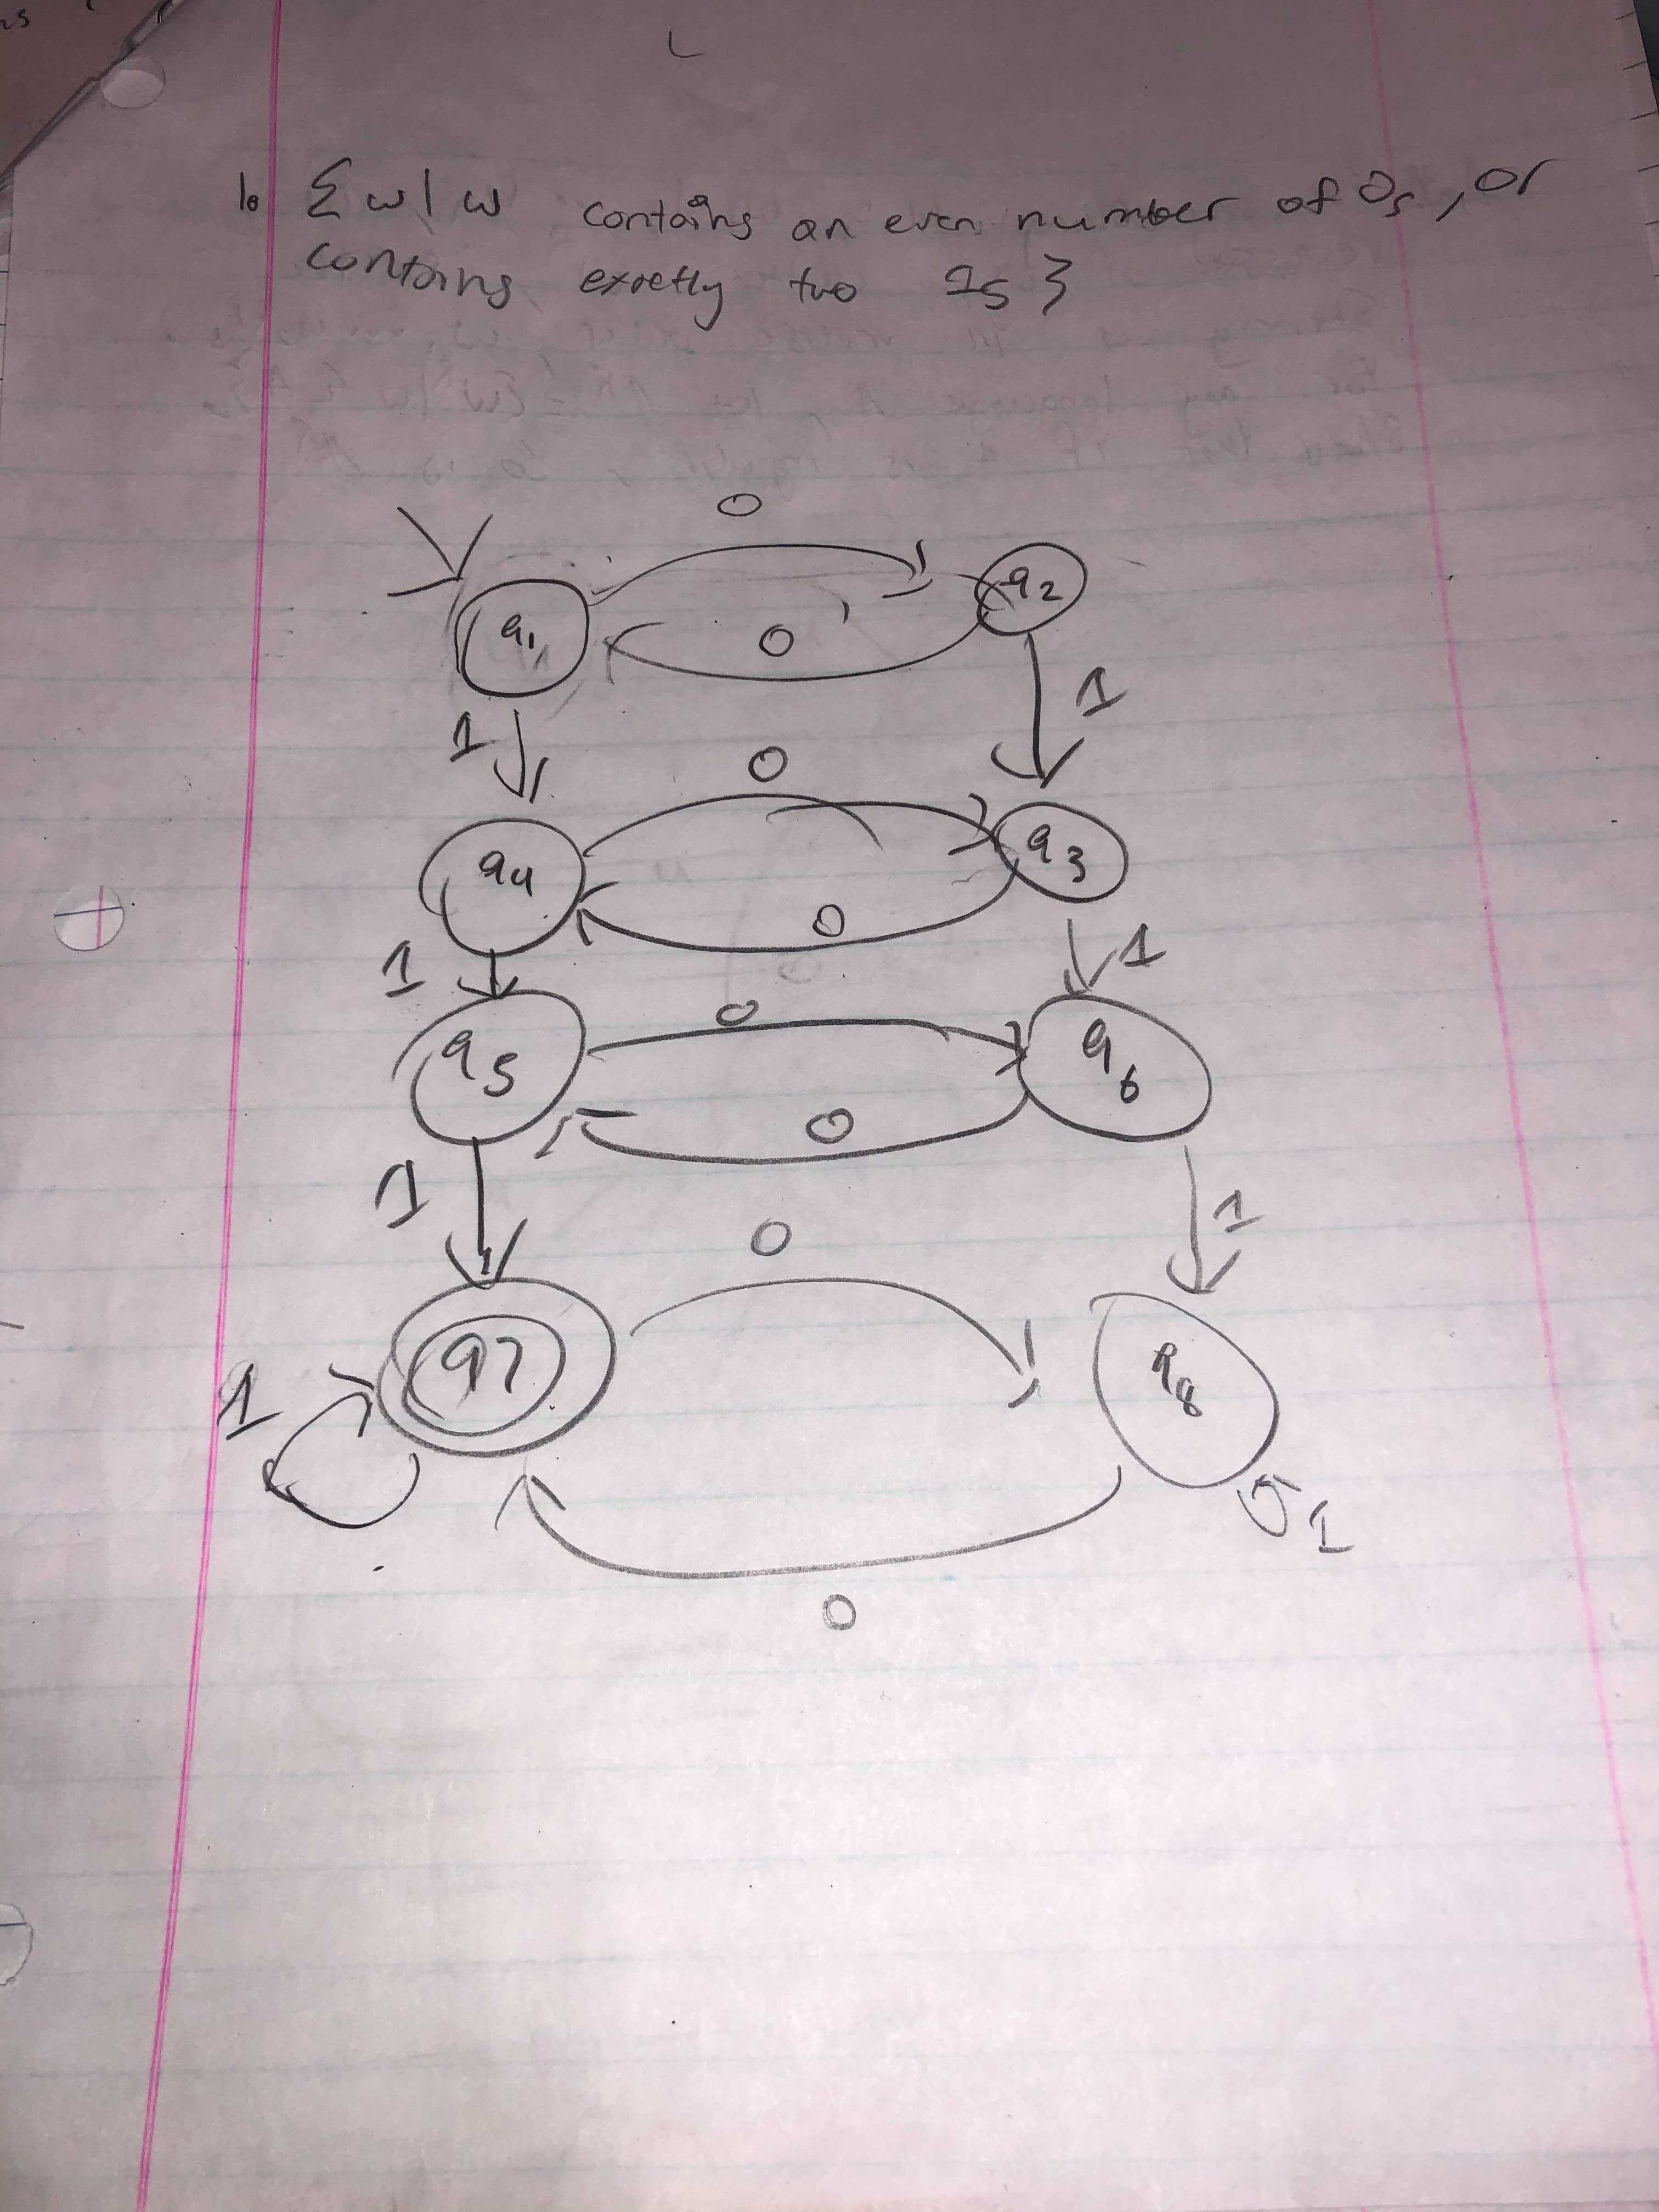 1. {w | w contains an even number of 0s, or
contains exactly two 1s}
0
q1
q2
0
1
1
0
q4
q3
0
1
1
0
q5
q6
0
1
1
0
q7
q8
1
1
0